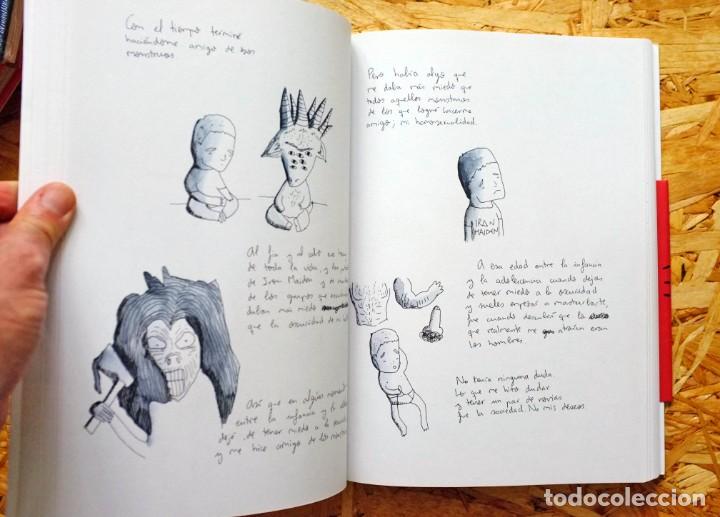 Con el tiempo terminé
haciéndome amigo de esos
monstruos
Al fin y al cabo
de toda la vida, y los
de Iron Maiden y
de los grupos que
daban más miedo
que la oscuridad de mi
Así que en algún momento
entre la infancia y la
dejé de tener miedo a la
y me hice amigo de los
Pero había algo que
me daba más miedo que
todos aquellos monstruos
de los que logré hacerme
amigo; mi homosexualidad.
IRON
MAIDEN
A esa edad entre la infancia
y la adolescencia cuando dejas
de tener miedo a la oscuridad
y sueles empezar a masturbarte,
fue cuando descubrí que
que realmente me atraían eran
los hombres
No tenía ninguna duda.
Lo que me hizo dudar
y tener un par de novias
fue la sociedad. No mis deseos
todocoleccion.net